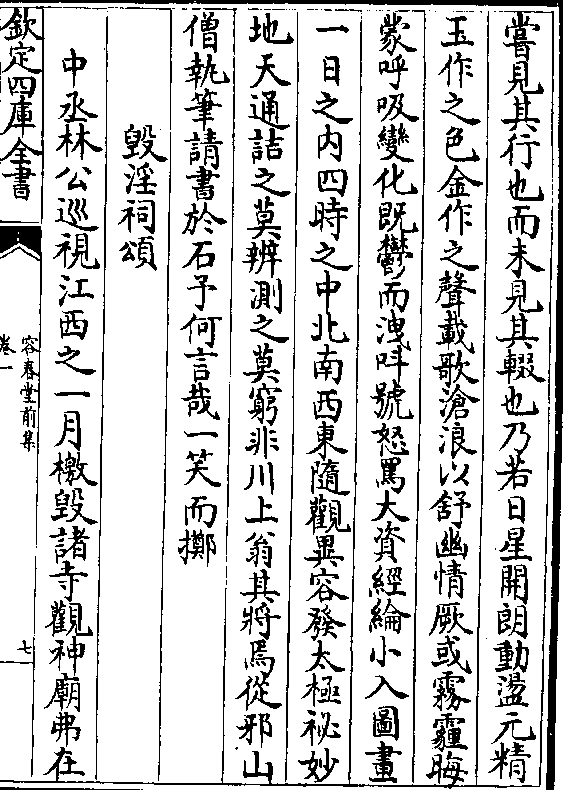 嘗見其行也而未見其輟也乃若日星開朗動盪元精
玉作之色金作之聲載歌滄浪以舒幽情厥或霧霾晦
蒙呼吸變化既鬱而洩呌號怒罵大資經綸小入圖畫
一日之内四時之中北南西東隨觀異容發太極祕妙
地天通詰之莫辨測之莫窮非川上翁其將焉從邪山
僧執筆請書於石予何言哉一笑而擲
毀淫祠頌
中丞林公巡視江西之一月檄毀諸寺觀神廟弗在
欽定四庫全書
容春堂前集
卷一
七